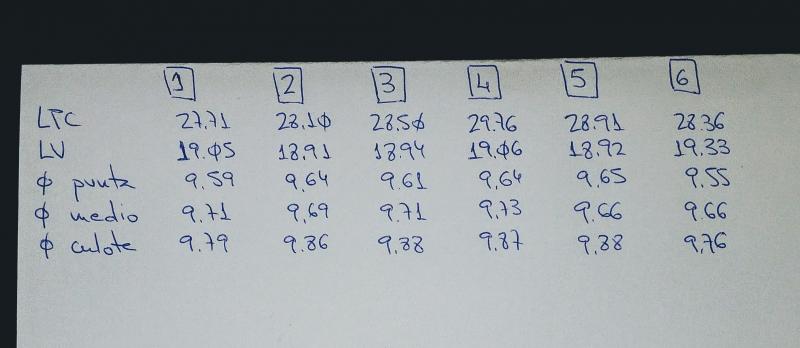 1 2 3 4 5 6
LTC 27.71 28.10 28.50 29.76 28.91 28.36
LV 19.05 18.91 18.94 19.06 18.92 19.33
φ punta 9.59 9.64 9.61 9.64 9.65 9.55
φ medio 9.71 9.69 9.71 9.73 9.66 9.66
φ culote 9.79 9.86 9.88 9.87 9.88 9.76